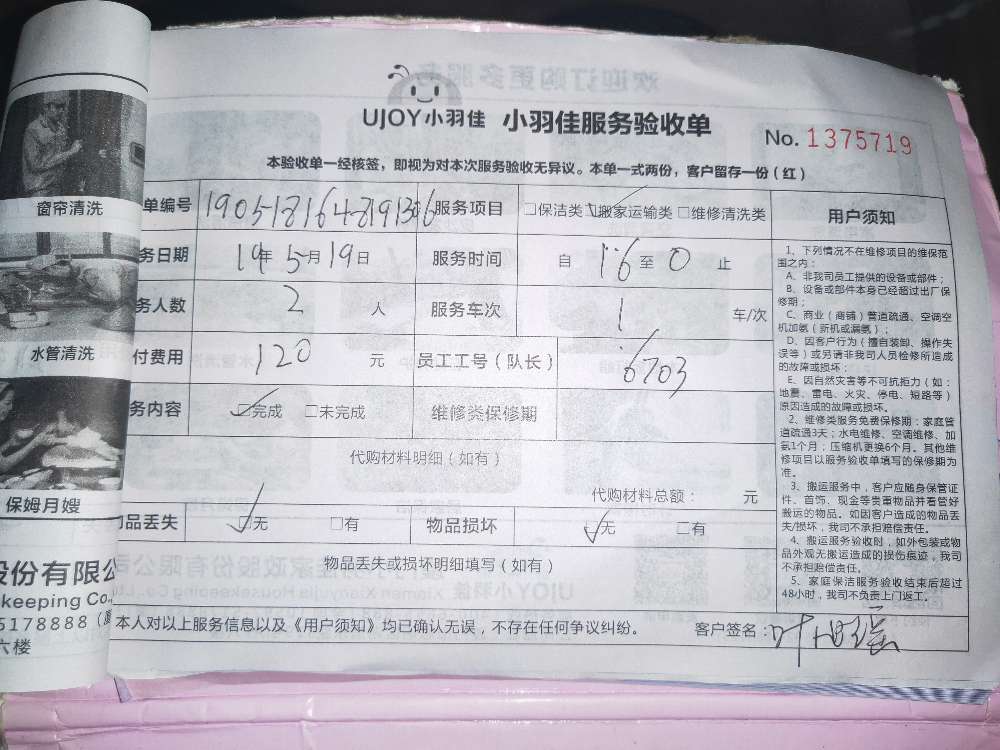 UJOY小羽佳 小羽佳服务验收单
No. 1375719
本验收单一经核签，即视为对本次服务验收无异议。本单一式两份，客户留存一份（红）
单编号 服务项目 □保洁类 ☑搬家运输类 □维修清洗类
务日期 19年5月19日 服务时间 自 16 至 0 止
务人数 2 人 服务车次 1 车/次
付费用 120 元 员工工号（队长） 6703
务内容 ☑完成 □未完成 维修类保修期
代购材料明细（如有）
代购材料总额： 元
品丢失 ☑无 □有 物品损坏 ☑无 □有
物品丢失或损坏明细填写（如有）
本人对以上服务信息以及《用户须知》均已确认无误，不存在任何争议纠纷。 客户签名：
用户须知
1、下列情况不在维修项目的维保范
围之内：
A、非我司员工提供的设备或部件；
B、设备或部件本身已经超过出厂保
修期；
C、商业（商铺）管道疏通、空调空
机加氨（新机或漏氨）；
D、因客户行为（擅自装卸、操作失
误等）或另请非我司人员检修所造成
的故障或损坏；
E、因自然灾害等不可抗拒力（如：
地震、雷电、火灾、停电、短路等）
原因造成的故障或损坏。
2、维修类服务免费保修期：家庭管
道疏通3天；水电维修、空调维修、加
氨1个月；压缩机更换6个月。其他维
修项目以服务验收单填写的保修期为
准。
3、搬运服务中，客户应随身保管证
件、首饰、现金等贵重物品并看管好
搬运的物品。如因客户造成的物品丢
失/损坏，我司不承担赔偿责任。
4、搬运服务验收时，如外包装或物
品外观无搬运造成的损伤痕迹，我司
不承担赔偿责任。
5、家庭保洁服务验收结束后超过
48小时，我司不负责上门返工。
窗帘清洗
水管清洗
保姆月嫂
份有限公
keeping Co.
5178888
六楼